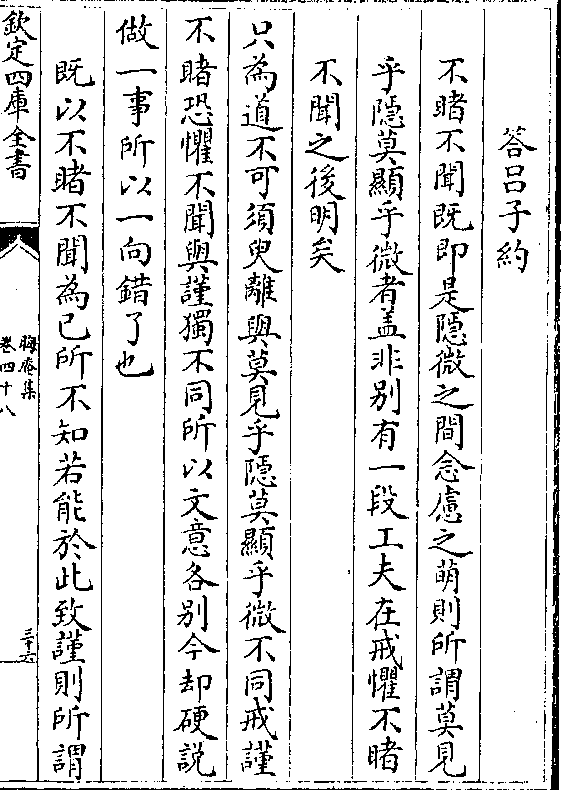 答吕子約
不睹不聞既即是隠微之間念慮之萌則所謂莫見
乎隠莫顯乎微者盖非别有一段工夫在戒懼不睹
不聞之後明矣
只為道不可須臾離與莫見乎隠莫顯乎微不同戒謹
不睹恐懼不聞與謹獨不同所以文意各别今却硬説
做一事所以一向錯了也
既以不睹不聞為已所不知若能於此致謹則所謂
欽定四庫全書
晦庵集
卷四十八
三十六